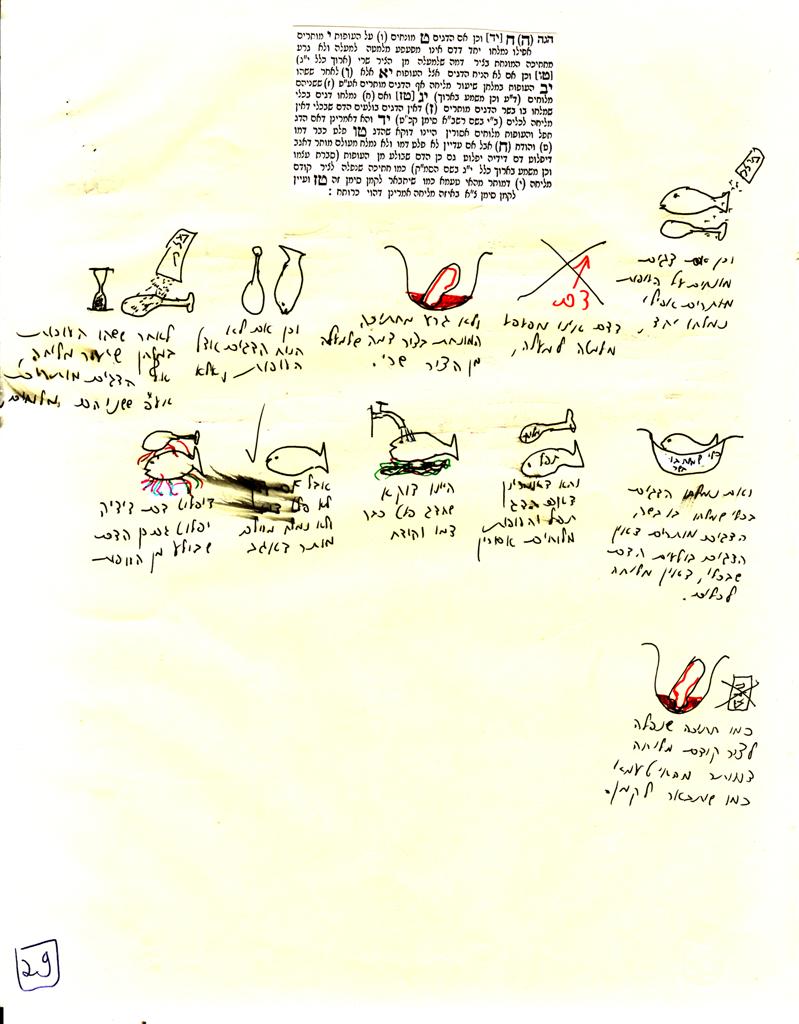 הגה (ה) ח [יד] וכן אם הדגים ט מונחים (ו) על העופות י מותרים
אפילו נמלחו יחד דדם אינו מפעפע מלמטה למעלה ולא גרע
מחתיכה המונחת בציר דמה שלמעלה מן הציר שרי (ארוך כלל י"ג)
[טו] וכן אם לא הניח הדגים אצל העופות יא אלא (ך) לאחר ששהו
יב העופות במלחן שיעור מליחה אף הדגים מותרים אע"פ (ז) ששניהם
מלוחים (ד"ע וכן משמע בארוך) יג [טז] ואם (ח) נמלחו דגים בכלי
שמלחו בו בשר הדגים מותרים (ז) דאין הדגים בולעים הדם שבכלי דאין
מליחה לכלים (ב"י בשם רשב"א סימן קכ"ט) יד והא דאמרינן דאם הדג
תפל והעופות מלוחים אסורין היינו דוקא שהדג טו פלט כבר דמו
(ט) והודח (ח) אבל אם עדיין לא פלט דמו ולא נמלח מעולם מותר דאגב
דיפלוט דם דידיה יפלוט גם כן הדם שבולע מן העופות (סברת עצמו
וכן משמע בארוך כלל י"ג בשם הסמ"ק) כמו חתיכה שנפלה לציר קודם
מליחה (י) דמותר מהאי טעמא כמו שיתבאר לקמן סימן זה טז ועיין
לקמן סימן צ"א באיזה מליחה אמרינן דהוי כרותח :
וכן אם דגים
מונחים על העופות
מותרים אפילו
נמלחו יחד,
דם
דדם אינו מפעפע
מלמטה למעלה,
ולא גרע מחתיכה
המונחת בציר דמה שלמעלה
מן הציר שרי.
וכן אם לא
הניח הדגים אצל
העופות אלא
לאחר ששהו העופות
במלחן שיעור מליחה,
אף הדגים מותרים
אע"פ ששניהם מלוחים
כלי שמלחו בו
בשר
ואם נמלחו הדגים
בכלי שמלחו בו בשר,
הדגים מותרים דאין
הדגים בולעים הדם
שבכלי, דאין מליחה
לכלים.
תפל
והא דאמרינן
דאם הדג
תפל והעופות
מלוחים אסורין
היינו דוקא
שהדג פלט כבר
דמו והודח
אבל אם
לא פלט דמו
ולא נמלח מעולם
מותר דאגב
דיפלוט דם דידיה
יפלוט גם כן הדם
שבולע מן העופות
כמו חתיכה שנפלה
לציר קודם מליחה
דמותר מהאי טעמא
כמו שיתבאר לקמן.
29